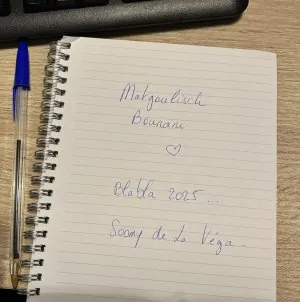 Matgoulisch
Bounani
♡
Blabla 2025 ...
Soany de La Véga.